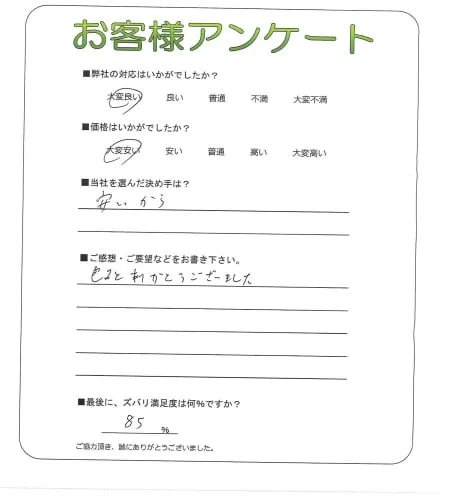 お客様アンケート
■弊社の対応はいかがでしたか？
大変良い 良い 普通 不満 大変不満
■価格はいかがでしたか？
大変安い 安い 普通 高い 大変高い
■当社を選んだ決め手は？
安いから
■ご感想・ご要望などをお書き下さい。
色々とありがとうございました
■最後に、ズバリ満足度は何%ですか？
85 %
ご協力頂き、誠にありがとうございました。